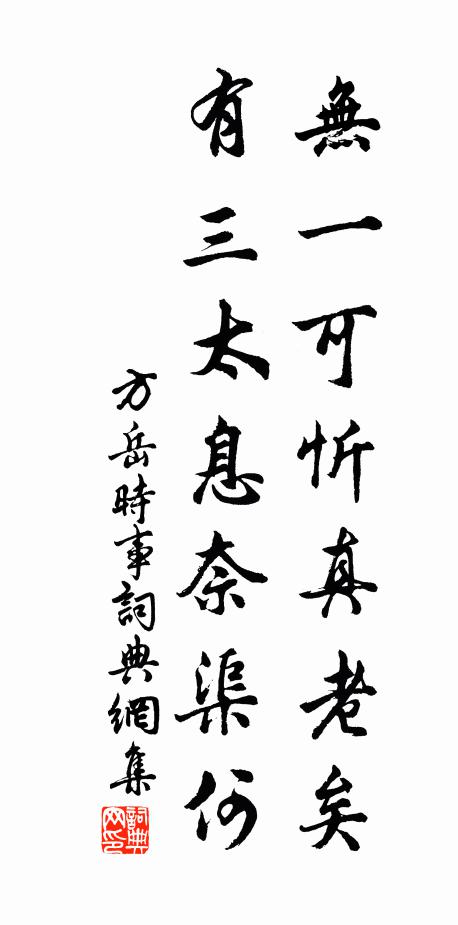 無一可忻真老矣
有三太息奈渠何
方岳時事詞典網集
詞典網印